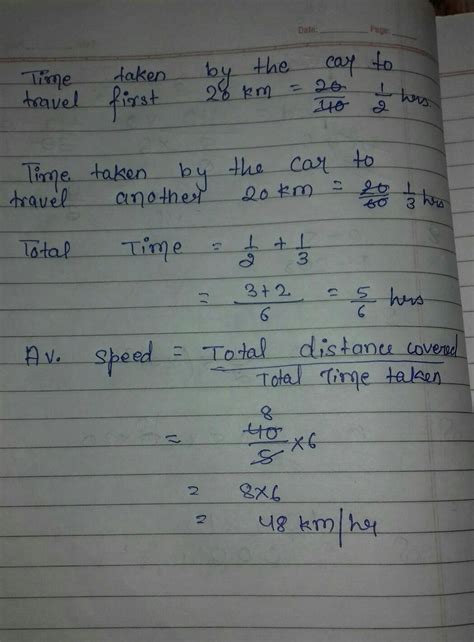 Date: Page:
Time taken by the car to
travel first 20 km = 20/40 1/2 hrs
Time taken by the car to
travel another 20 km = 20/60 1/3 hrs
Total Time = 1/2 + 1/3
= 3+2/6 = 5/6 hrs
Av. speed = Total distance covered
Total Time taken
8
= 40/5 ×6
= 8×6
= 48 km/hr